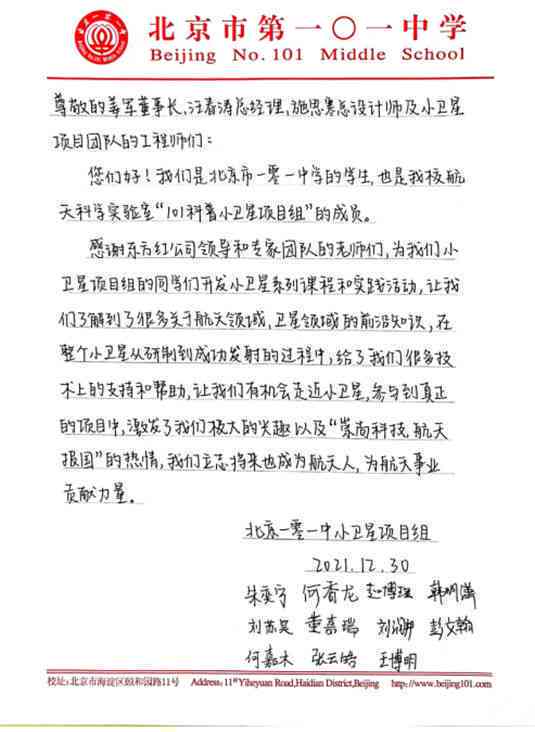 北京市第一〇一中学
Beijing No. 101 Middle School
尊敬的姜军董事长，汪春涛总经理，施思寒总设计师及小卫星
项目团队的工程师们：
您们好！我们是北京市一零一中学的学生，也是我校航
天科学实验室“101科普小卫星项目组”的成员。
感谢东方红公司领导和专家团队的老师们，为我们小
卫星项目组的同学们开发小卫星系列课程和实践活动，让我
们了解到了很多关于航天领域，卫星领域的前沿知识，在
整个小卫星从研制到成功发射的过程中，给了我们很多技
术上的支持和帮助，让我们有机会走近小卫星，参与到真正
的项目中，激发了我们极大的兴趣以及“崇尚科技，航天
报国”的热情，我们立志将来也成为航天人，为航天事业
贡献力量。
北京一零一中小卫星项目组
2021.12.30
朱奕宁 何香龙 赵博理 韩明
刘苏昊 董嘉瑞 彭文翰
何嘉木 张云皓 王博明
校址：北京市海淀区颐和园路11号 Address: 11# Yiheyuan Road, Haidian District, Beijing http://www.beijing101.com